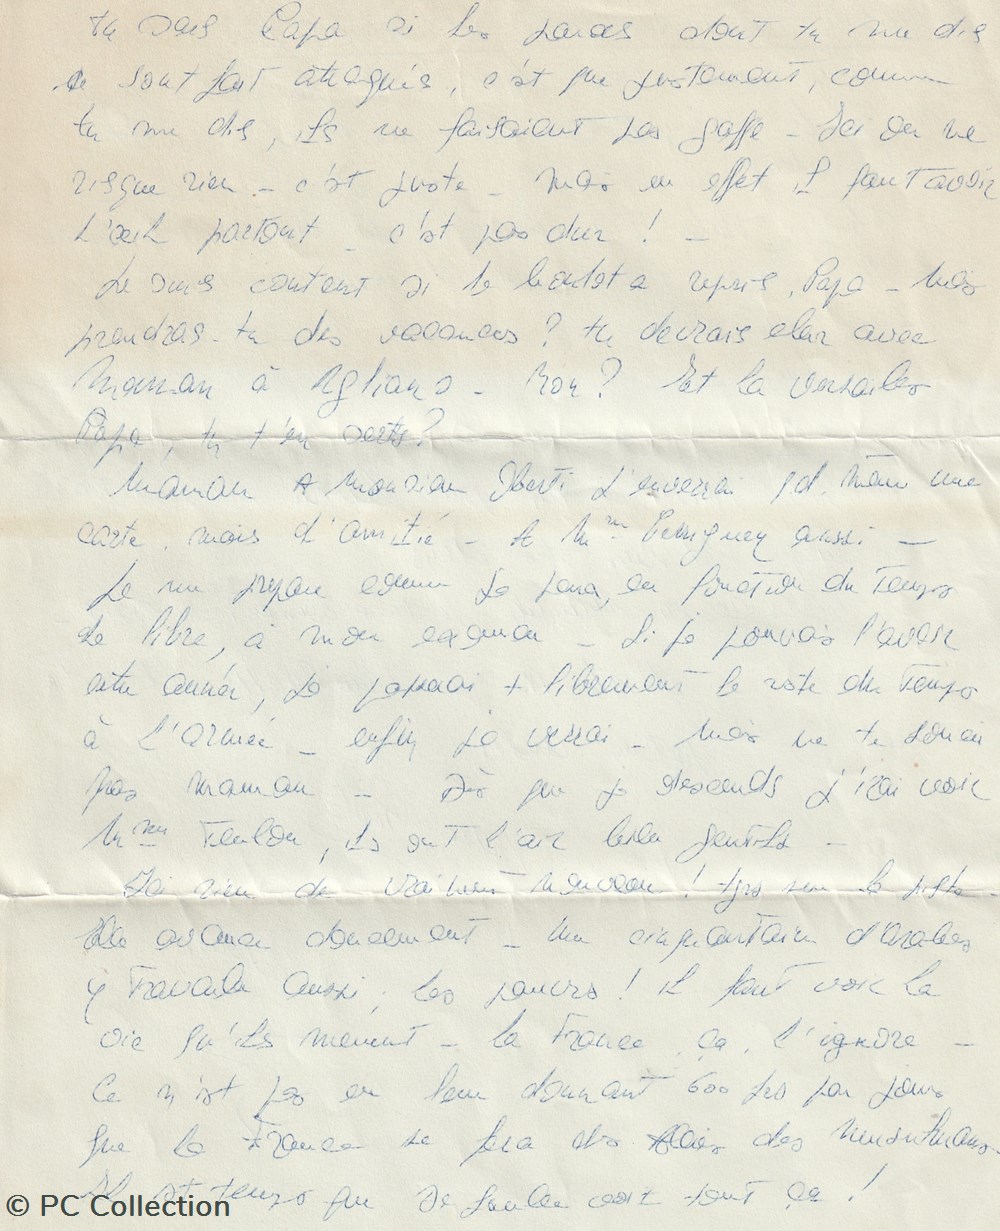 tu sais Papa si les paras dont tu me dis
se sont fait attaqués, c'est que justement, comme
tu me dis, ils ne faisaient pas gaffe - Ici on ne
risque rien - c'est juste - mais en effet il faut avoir
l'œil partout - c'est pas dur ! -
Je suis content si le boulot a repris, Papa - Mais
prendras-tu des vacances ? tu devrais aller avec
Maman à Agliano - Non ? Et la Versailles
Papa, tu t'en sers ?
Maman A Monsieur j'enverrai qd. même une
carte, mais d'amitié - A Mme aussi -
Je me prépare comme je peux, en fonction du temps
de libre, à mon examen - Si je pouvais l'avoir
cette année, je + librement le reste du temps
à l'armée - enfin je verrai - Mais ne te
pas Maman - Dès que je descends j'irai voir
Mme, ils ont l'air bien gentils -
Ici rien de vraiment nouveau ! la piste
avance doucement - Une cinquantaine d'arabes
y travaille aussi, les pauvres ! il faut voir la
vie qu'ils mènent - la France, ça, l'ignore -
Ce n'est pas en leur donnant 600 frs par jours
que la France se fera des des Musulmans -
Il est temps que De Gaulle voit tout ça !
© PC Collection